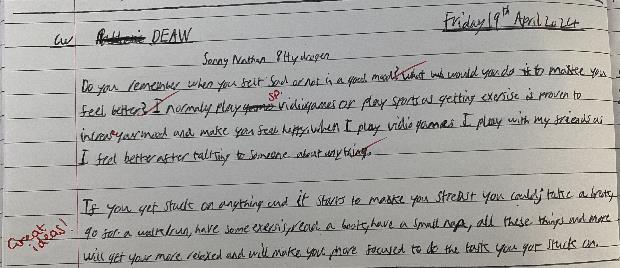 Friday 19th April 2024
CW DEAW
Sonny Nathan 8Hydrogen
Do you remember when you felt Sad or not in a good mood? What would you do to make you
feel better? I normaly play SP vidiogames or play sports as getting exersise is proven to
increase your mood and make you feel happy. When I play vidio games I play with my friends as
I feel better after talking to someone about anything.
If you get stuck on anything and it starts to make you stresst you could; take a break,
Great ideas!
go for a walk/run, have some exersis, read a book, have a small nap, all these things and more
will get your more relaxed and will make you more focused to do the task you got stuck on.